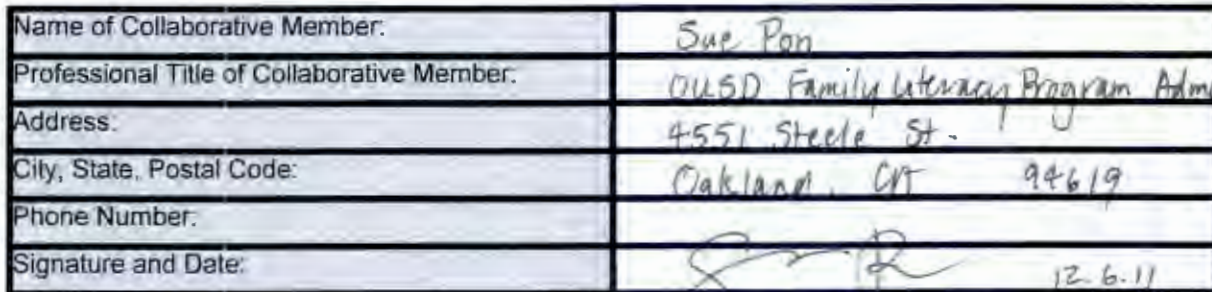 Name of Collaborative Member: Sue Pon
Professional Title of Collaborative Member: OUSD Family Literacy Program Adm
Address: 4551 Steele St.
City, State, Postal Code: Oakland, CA 94619
Phone Number:
Signature and Date: 12.6.11